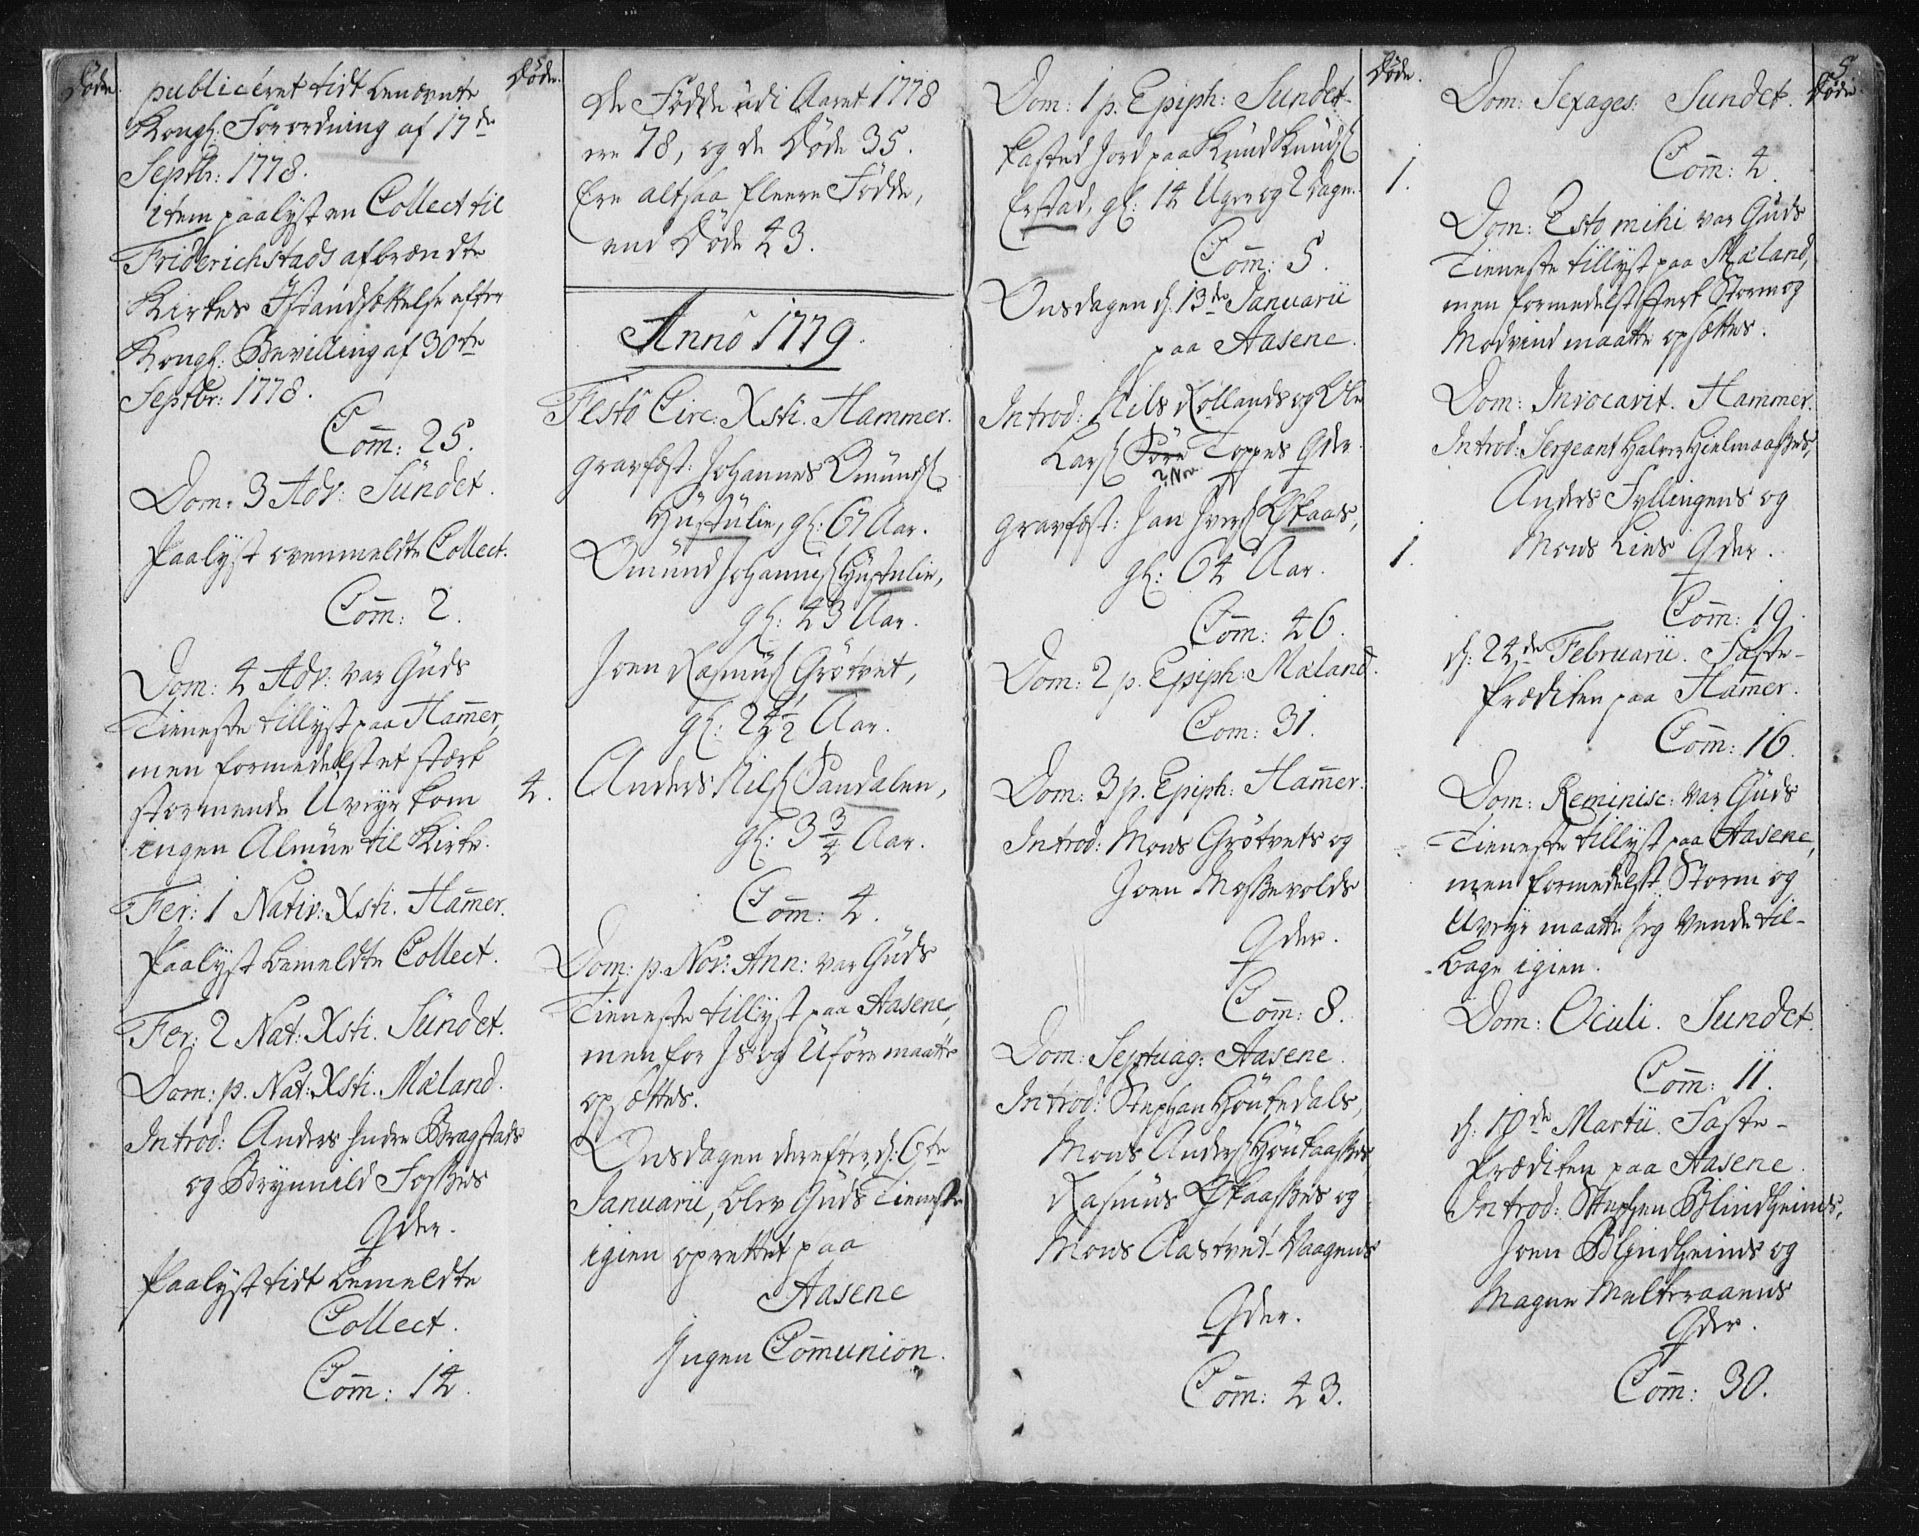 Døde.
publiceret tidt benævnte
Kongl: Forordning af 17de
Septbr: 1778.
item paalyst en Collect til
Friderichstads afbrændte
Kirkes Istandsættelse efter
Kongl: Bevilling af 30te
Septbr: 1778.
Com̄: 25.
Dom: 3 Adv: Sündet.
Paalyst ovenmeldte Collect.
Com̄: 2.
Dom: 4 Adv: var Güds
Tieneste tillyst paa Ham̄er,
men formedelst et stærk
stormende Uveyr kom
ingen Almüe til Kirke.
Fer: 1 Nativ: Xsti. Ham̄er.
Paalyst bemeldte Collect.
Fer: 2 Nat: Xsti. Sündet.
Dom: p. Nat: Xsti. Mæland.
Introd: Anders Indre Bragstads
og Brynnild Fosses
Qder.
Paalyst tidt bemeldte
Collect.
Com̄: 14.
Døde.
4.
De Fødde udi Aaret 1778
ere 78, og de Døde 35.
Ere altsaa fleere Fødde,
end Døde 43.
Anno 1779.
Festo Circ: Xsti. Hammer.
Gravfæst: Johannes Omünds.
Hustulie, gl: 67 Aar.
Omünd Johannis. Hustulie,
gl: 43 Aar.
Joen Rasmus. Grøtvet,
gl: 24½ Aar.
Anders Nils. Sandalen,
gl: 3¾ Aar.
Com̄: 4.
Dom: p. Nov: Ann: var Güds
Tieneste tillyst paa Aasene,
men for Is og Uføre maatte
opsættes.
Onsdagen derefter d: 6te
Januarii, blev Güds Tieneste
igien oprettet paa
Aasene
Ingen Com̄union.
Dom: 1 p. Epiph: Sundet.
kasted Jord paa Knud Knuds.
Erstad, gl: 14 Uger og 2 Dage.
Com̄: 5.
Onsdagen d: 13de Januarii
paa Aasene.
Introd: Nils Rollands og Ole
Lars. Søre Toppes Qder.
Gravfæst: Jan Ivers. Eskaas,
gl: 64 Aar.
Com̄: 46.
Dom: 2 p. Epiph: Mæland.
Com: 31.
Dom: 3 p. Epiph: Ham̄er.
Introd: Mons Grøtvets og
Joen Mossevolds
Qder.
Com̄: 8.
Dom: Septuag: Aasene.
Introd: Stephan Høütedals,
Mons Anders. Høükaasses
Rasmus Eskaasses og
Mons Aastvet-Vaagens
Qder.
Com̄: 43.
Døde.
1.
1.
Dom: Sexages: Sundet.
Com̄: 4.
Dom: Esto mihi var Güds
Tieneste tillyst paa Mæland,
men formedelst sterk Storm og
Modvind maatte opsættes.
Dom: Invocavit. Hammer.
Introd: Sergeant Halvor Hielmaasses,
Anders Fyllingens og
Mons Lies Qder.
Com̄: 19.
d: 24de Februarii. Faste-
Prædiken paa Ham̄er.
Com̄: 16.
Dom: Reminisc: var Güds
Tieneste tillyst paa Aasene,
men formedelst Storm og
Uveyr maatte jeg vende til-
bage igien.
Dom: Oculi. Sundet.
Com̄: 11.
d: 10de Martii. Faste-
Prædiken paa Aasene.
Introd: Stephen Blindheims,
Joen Blindheims og
Magne Melteraaens
Qder.
Com̄: 30.
5
Døde.